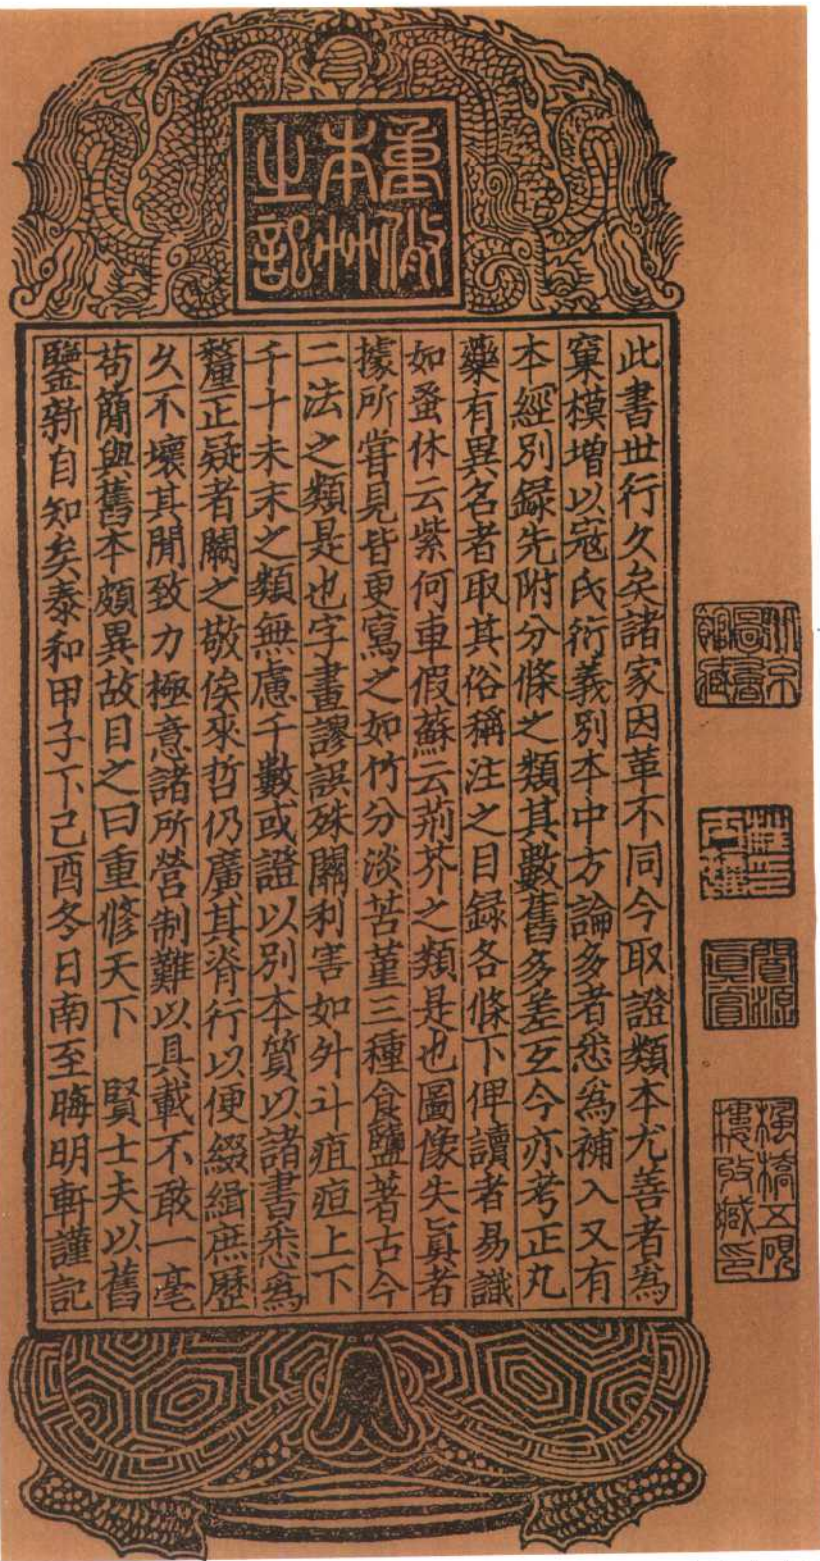 重修
本艸
之記
此書世行久矣諸家因革不同今取證類本尤善者爲
窠模增以寇氏衍義別本中方論多者悉爲補入又有
本經別錄先附分條之類其數舊多差互今亦考正凡
藥有異名者取其俗稱注之目錄各條下俾讀者易識
如蚤休云紫何車假蘇云荊芥之類是也圖像失眞者
據所嘗見皆更寫之如竹分淡苦菫三種食鹽著古今
二法之類是也字畫謬誤殊關利害如升斗疽疸上下
千十未末之類無慮千數或證以別本質以諸書悉爲
釐正疑者闕之敬俟來哲仍廣其脊行以便綴緝庶歷
久不壞其間致力極意諸所營制難以具載不敢一毫
苟簡與舊本頗異故目之曰重修天下　賢士夫以舊
鑒新自知矣泰和甲子下己酉冬日南至晦明軒謹記
北京
圖書
館藏
閬源
眞賞
楓橋五硯
樓收藏印